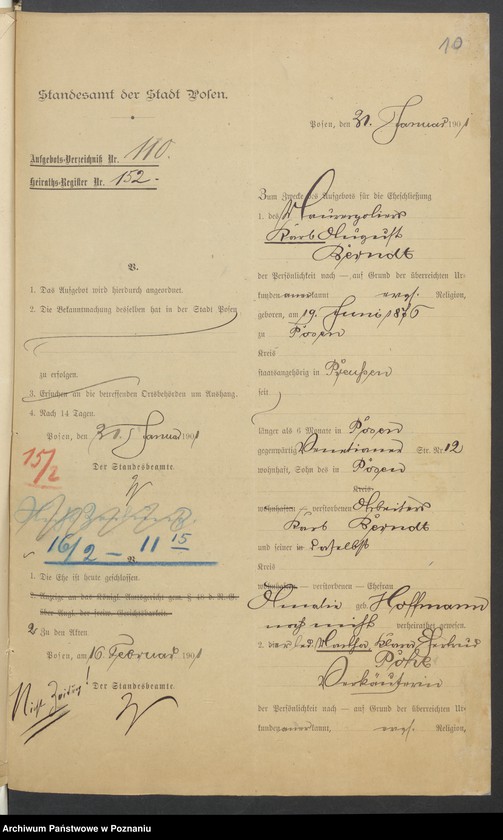 10
Standesamt der Stadt Posen.
Aufgebots-Verzeichniß Nr. 110.
Heiraths-Register Nr. 152.
V.
1. Das Aufgebot wird hierdurch angeordnet.
2. Die Bekanntmachung desselben hat in der Stadt Posen
zu erfolgen.
3. Ersuchen an die betreffenden Ortsbehörden um Aushang.
4. Nach 14 Tagen.
Posen, den 31. Januar 1901
Der Standesbeamte.
15/2
16/2 – 11 15
V.
1. Die Ehe ist heute geschlossen.
2. Anzeige an das Königl. Amtsgericht gem. § 48 d. R.-G.
über Angl. der freiw. Gerichtsbarkeit.
2 Zu den Akten
Posen, am 16. Februar 1901
Der Standesbeamte.
Nicht Zeitung!
Posen, den 31. Januar 1901
Zum Zwecke des Aufgebots für die Eheschließung
1. des Maurerpoliers
Karl August
Berndt
der Persönlichkeit nach — auf Grund der überreichten Ur-
kunden anerkannt evgl. Religion,
geboren, am 19. Juni 1876
zu Posen
Kreis
staatsangehörig in Preußen
seit
länger als 6 Monate in Posen
gegenwärtig Venetianer Str. Nr. 12
wohnhaft, Sohn des in Posen
Kreis
wohnhaften — verstorbenen Arbeiters
Karl Berndt
und seiner in daselbst
Kreis
wohnhaften — verstorbenen — Ehefrau
Amalie geb. Hoffmann
noch nicht verheirathet gewesen.
2. der led. Martha Klara Gertrud
Pohl
Verkäuferin
der Persönlichkeit nach — auf Grund der überreichten Ur-
kunden anerkannt, evgl. Religion,
Archiwum Państwowe w Poznaniu